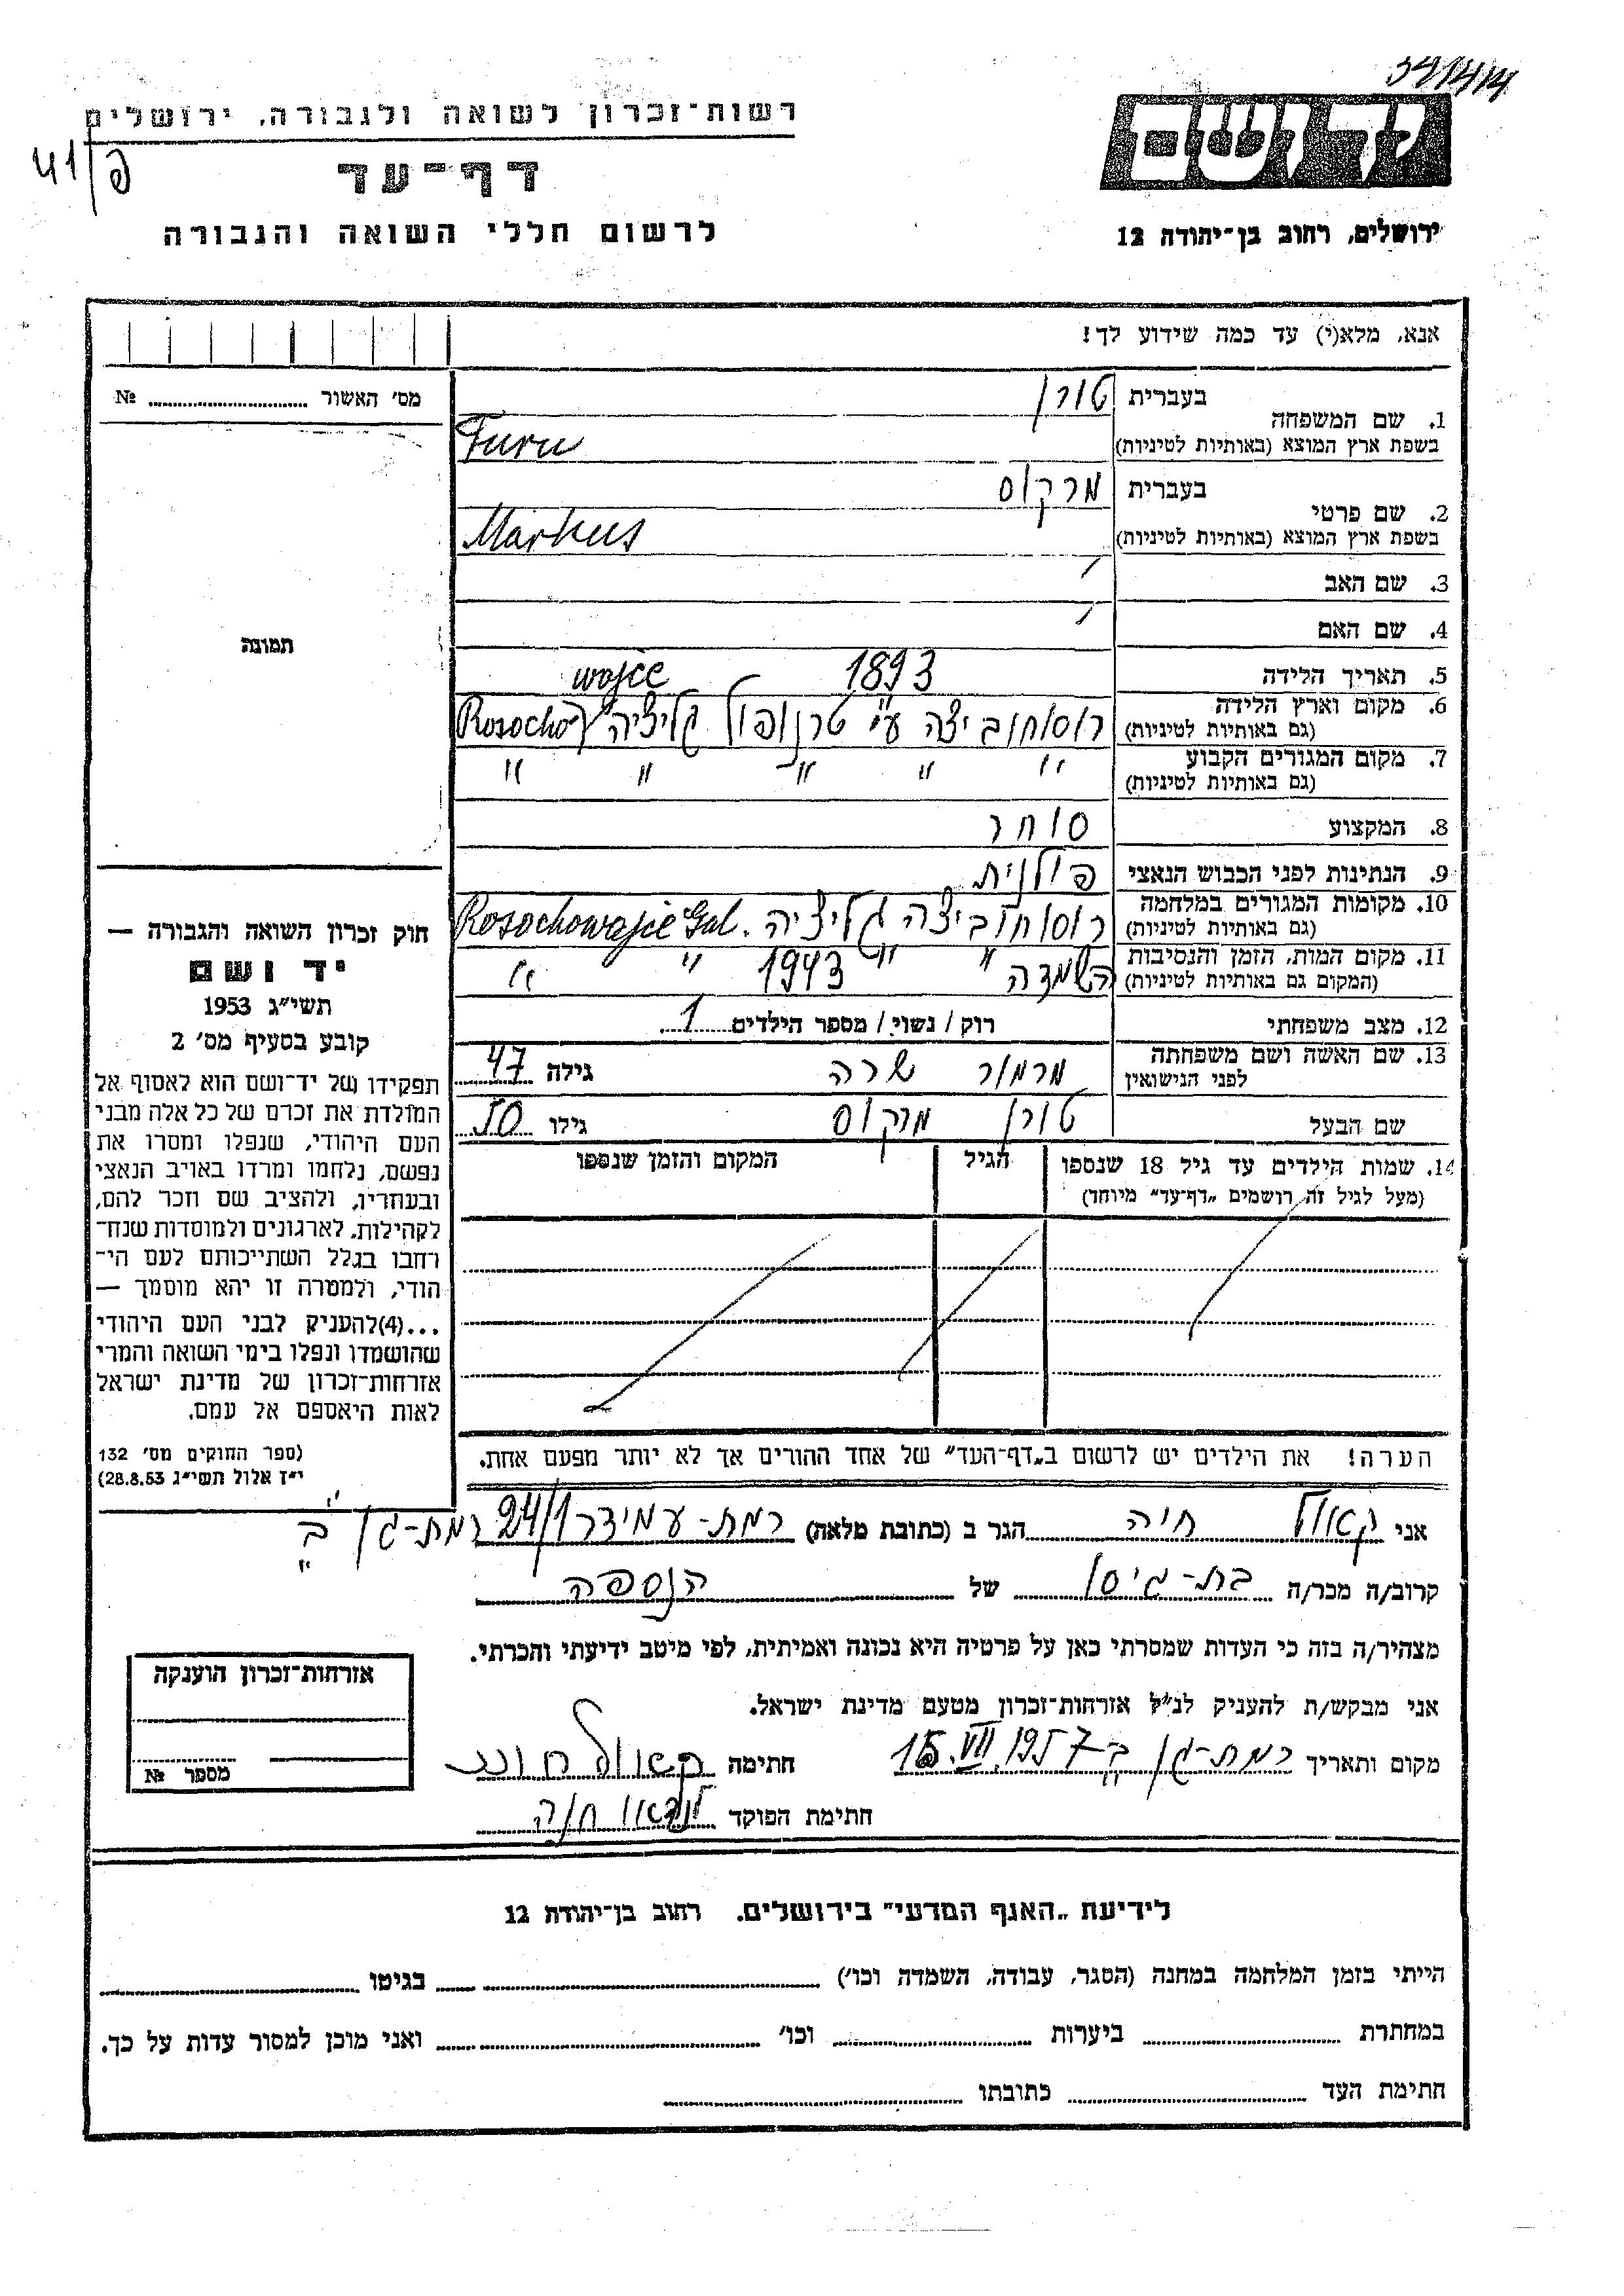 391414
רשות־זכרון לשואה ולגבורה, ירושלים
יד ושם
41/פ
דף־עד
לרשום חללי השואה והגבורה
ירושלים, רחוב בן־יהודה 12
אנא, מלא(י) עד כמה שידוע לך!
מס׳ האשור № ........
1. שם המשפחה
בעברית טורן
בשפת ארץ המוצא (באותיות לטיניות) Turn
2. שם פרטי
בעברית מרקוס
בשפת ארץ המוצא (באותיות לטיניות) Markus
3. שם האב /
4. שם האם /
5. תאריך הלידה 1893
6. מקום וארץ הלידה
(גם באותיות לטיניות)
רוסוחוביצה ע״י טרנופול גליציה Rosocho
wajce
7. מקום המגורים הקבוע
(גם באותיות לטיניות)
״ ״ ״ ״ ״
8. המקצוע סוחר
9. הנתינות לפני הכבוש הנאצי פולנית
10. מקומות המגורים במלחמה
(גם באותיות לטיניות)
רוסוחוביצה גליציה. Rosochowajce Gal.
11. מקום המות, הזמן והנסיבות
(המקום גם באותיות לטיניות)
השמדה ״ ״ 1943 ״ ״
12. מצב משפחתי רוק / נשוי / מספר הילדים 1
13. שם האשה ושם משפחתה
לפני הנישואין
מרמור שרה גילה 47
שם הבעל טורן מרקוס גילו 50
14. שמות הילדים עד גיל 18 שנספו
(מעל לגיל זה רושמים „דף־עד״ מיוחד)
הגיל
המקום והזמן שנספו
הערה! את הילדים יש לרשום ב„דף־העד״ של אחד ההורים אך לא יותר מפעם אחת.
תמונה
חוק זכרון השואה והגבורה —
יד ושם
תשי״ג 1953
קובע בסעיף מס׳ 2
תפקידו של יד־ושם הוא לאסוף אל
המולדת את זכרם של כל אלה מבני
העם היהודי, שנפלו ומסרו את
נפשם, נלחמו ומרדו באויב הנאצי
ובעוזריו, ולהציב שם וזכר להם,
לקהילות, לארגונים ולמוסדות שנח־
רבו בגלל השתייכותם לעם הי־
הודי, ולמטרה זו יהא מוסמך —
...(4)להעניק לבני העם היהודי
שהושמדו ונפלו בימי השואה והמרי
אזרחות־זכרון של מדינת ישראל
לאות היאספם אל עמם.
(ספר החוקים מס׳ 132
י״ז אלול תשי״ג 28.8.53)
אני קאול חיה הגר ב (כתובת מלאה) רמת-עמידר 24/1 רמת-גן ״ב״
קרוב/ה מכר/ה בת-גיסו של הנספה
מצהיר/ה בזה כי העדות שמסרתי כאן על פרטיה היא נכונה ואמיתית, לפי מיטב ידיעתי והכרתי.
אני מבקש/ת להעניק לנ״ל אזרחות־זכרון מטעם מדינת ישראל.
מקום ותאריך רמת-גן ב- 15.VII.1957 חתימה קאול
חתימת הפוקד לנדאו חנה
אזרחות־זכרון הוענקה
מספר №
לידיעת „האגף המדעי״ בירושלים. רחוב בן־יהודה 12
הייתי בזמן המלחמה במחנה (הסגר, עבודה, השמדה וכו׳) ........ בגיטו ........
במחתרת ........ ביערות ........ וכו׳ ........ ואני מוכן למסור עדות על כך.
חתימת העד ........ כתובתו ........